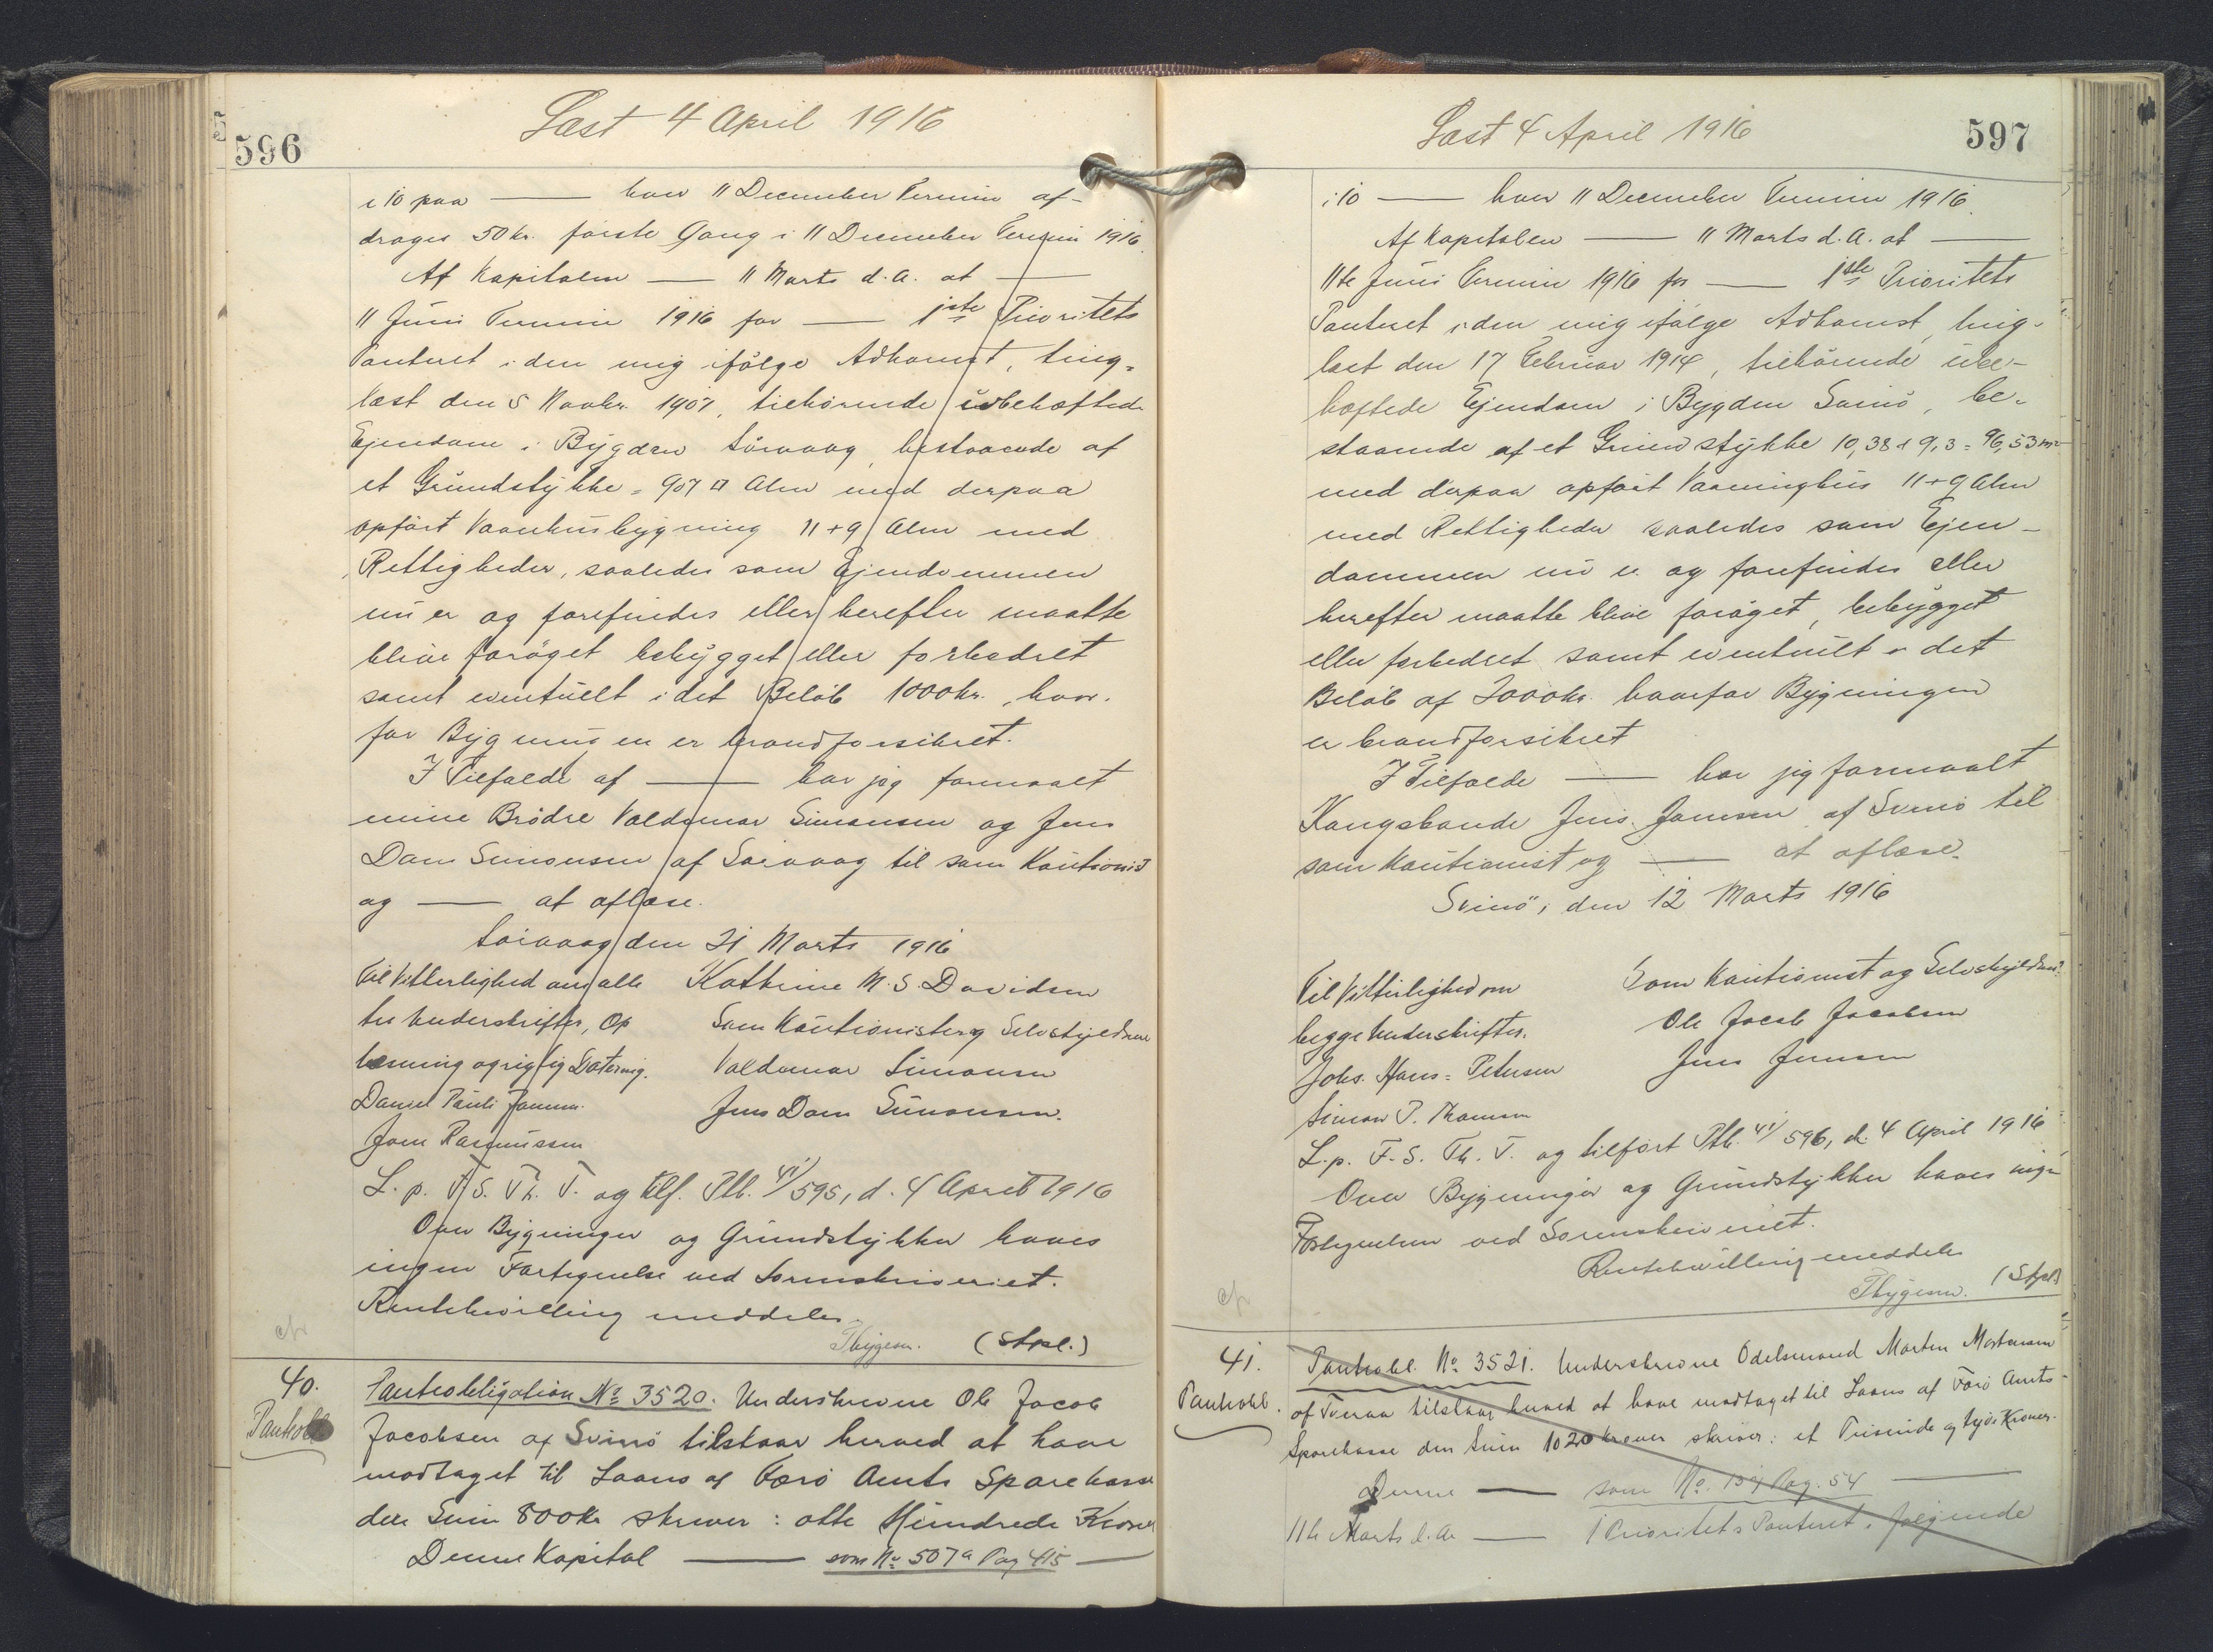 596
Læst 4 April 1916
i 10 paa — hver 11 December Termin af-
drages 50 kr. første Gang i 11 December Termin 1916.
Af Kapitalen — 11 Marts d.A. at —
11 Juni Termin 1916 for — 1ste Prioritets
Panteret i den mig ifølge Adkomst, ting-
læst den 5 Novbr. 1907, tilhørende ubehæftede
Ejendom i Bygden Sörvaag, bestaaende af
et Grundstykke = 907 □ Alen med derpaa
opført Vaanhusbygning 11 + 9 Alen med
Rettigheder, saaledes som Ejendommen
nu er og forefindes eller herefter maatte
blive forøget bebygget eller forbedret
samt eventuelt i det Beløb 1000 kr., hvor-
for Bygningen er brandforsikret.
I Tilfælde af — har jeg formaaet
mine Brødre Valdemar Simonsen og Jens
Dam Simonsen af Sörvaag til som Kautionist
og — at aflæse.
Sörvaag den 21 Marts 1916
Til Vitterlighed om alle Kathrine M. S. Davidsen
tre Underskrifter, Op Som Kautionister og Selvskyldnere
læsning og rigtig Datering. Valdemar Simonsen
Daniel Pauli Jensen. Jens Dam Simonsen.
Joen Rasmussen
L. p. F. S. Th. T. og tilf. Ptb. 41/595, d. 4 April 1916
Over Bygninger og Grundstykker haves
ingen Fortegnelse ved Sorenskriveriet.
Rentebevilling meddeles
Thygesen. (Stpl.)
40. Pantobligation No 3520. Underskrevne Ole Jacob
Pantobl. Jacobsen af Svinö tilstaar herved at have
modtaget til Laans af Færö Amts Sparekasse
den Sum 800 Kr skriver: otte Hundrede Kroner
Denne Kapital — som No 507a Pag 415 —
Læst 4 April 1916
597
i 10 — hver 11 December Termin 1916.
Af Kapitalen — 11 Marts d.A. at —
11te Juni Termin 1916 for — 1ste Prioritets
Panteret i den mig ifølge Adkomst, ting-
læst den 17 Februar 1914, tilhørende ube-
hæftede Ejendom i Bygden Svinö, be-
staaende af et Grundstykke 10,38 x 9,3 = 96,53 m2
med derpaa opført Vaaninghus 11 + 9 Alen
med Rettigheder saaledes som Ejen-
dommen nu er og forefindes eller
herefter maatte blive forøget, bebygget
eller forbedret samt eventuelt i det
Beløb af 2000 kr. hvorfor Bygningen
er brandforsikret
I Tilfælde — har jeg formaaet
Kongsbonde Jens Jensen af Svinö til
som Kautionist og — at aflæse.
Svinö, den 12 Marts 1916
Til Vitterlighed om Som Kautionist og Selvskyldner.
begge Underskrifter. Ole Jacob Jacobsen
Johs. Hans-Petersen Jens Jensen
Simon P. Thomsen
L. p. F. S. Th. T. og tilført Ptb. 41/596, d. 4 April 1916
Over Bygninger og Grundstykker haves ingen
Fortegnelser ved Sorenskriveriet.
Rentebevilling meddeles
Thygesen. (Stpl)
41. Pantobl. No 3521. Underskrevne Odelsmand Morten Mortensen
Pantobl. af Tveraa tilstaar herved at have modtaget til Laans af Færö Amts
Sparekasse den Sum 1020 kroner skriver: et Tusinde og tyve Kroner.
Denne — som No. 139 Pag. 54 —
11te Marts d.A. — 1 Prioritets Panteret i følgende